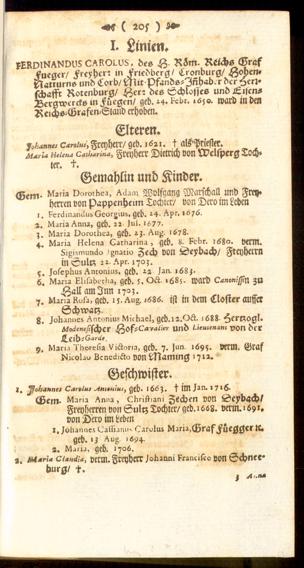 ( 205 )
I. Linien.
FERDINANDUS CAROLUS, des H. Röm. Reichs Graf
Fueger/ Freyherr in Friedberg/ Cronburg/ Hohen-
Matturns und Corb/ Mit-Pfands-Inhaber der Herr-
schafft Rotenburg/ Herr des Schlosses und Eisens
Bergwercks in Füegen/ geb. 24. Febr. 1650. ward in den
Reichs-Grafen-Stand erhoben.
Elteren.
Johannes Carolus, Freyherr/ geb. 1621. † als Priester.
Maria Helena Catharina, Freyherr Dietrich von Welsperg Toch-
ter. †.
Gemahlin und Kinder.
Gem. Maria Dorothea, Adam Wolfgang Marschall und Frey-
herren von Pappenheim Tochter/ von Dero im Leben
1. Ferdinandus Georgius, geb. 24. Apr. 1676.
2. Maria Anna, geb. 22. Jul. 1677.
3. Maria Dorothea, geb. 23. Aug. 1678.
4. Maria Helena Catharina, geb. 8. Febr. 1680. verm.
Sigismundo Ignatio Zech von Seybach/ Freyherrn
in Sultz 22. Apr. 1703.
5. Josephus Antonius, geb. 22. Jan. 1683.
6. Maria Elisabetha, geb. 5. Oct. 1685. ward Canonissin zu
Hall am Inn 1702.
7. Maria Rosa, geb. 15. Aug. 1686. ist in dem Closter ausser
Schwatz.
8. Johannes Antonius Michael, geb. 12. Oct. 1688. Hertzogl.
Modenesischer Hof-Cavalier und Lieutenant von der
Leib-Garde.
9. Maria Theresia Victoria, geb. 7. Jun. 1695. verm. Graf
Nicolao Benedicto von Maming 1712.
Geschwister.
1. Johannes Carolus Antonius, geb. 1663. † im Jan. 1716.
Gem. Maria Anna, Christiani Zechen von Seybach/
Freyherren von Sultz Tochter/ geb. 1668. verm. 1691.
von Dero im Leben
1. Johannes Cassianus Carolus Maria, Graf Füegger ꝛc.
geb. 13. Aug. 1694.
2. Maria, geb. 1706.
2. Maria Claudia, verm. Freyherr Johanni Francisco von Schnee-
burg/ †.
3 Anna